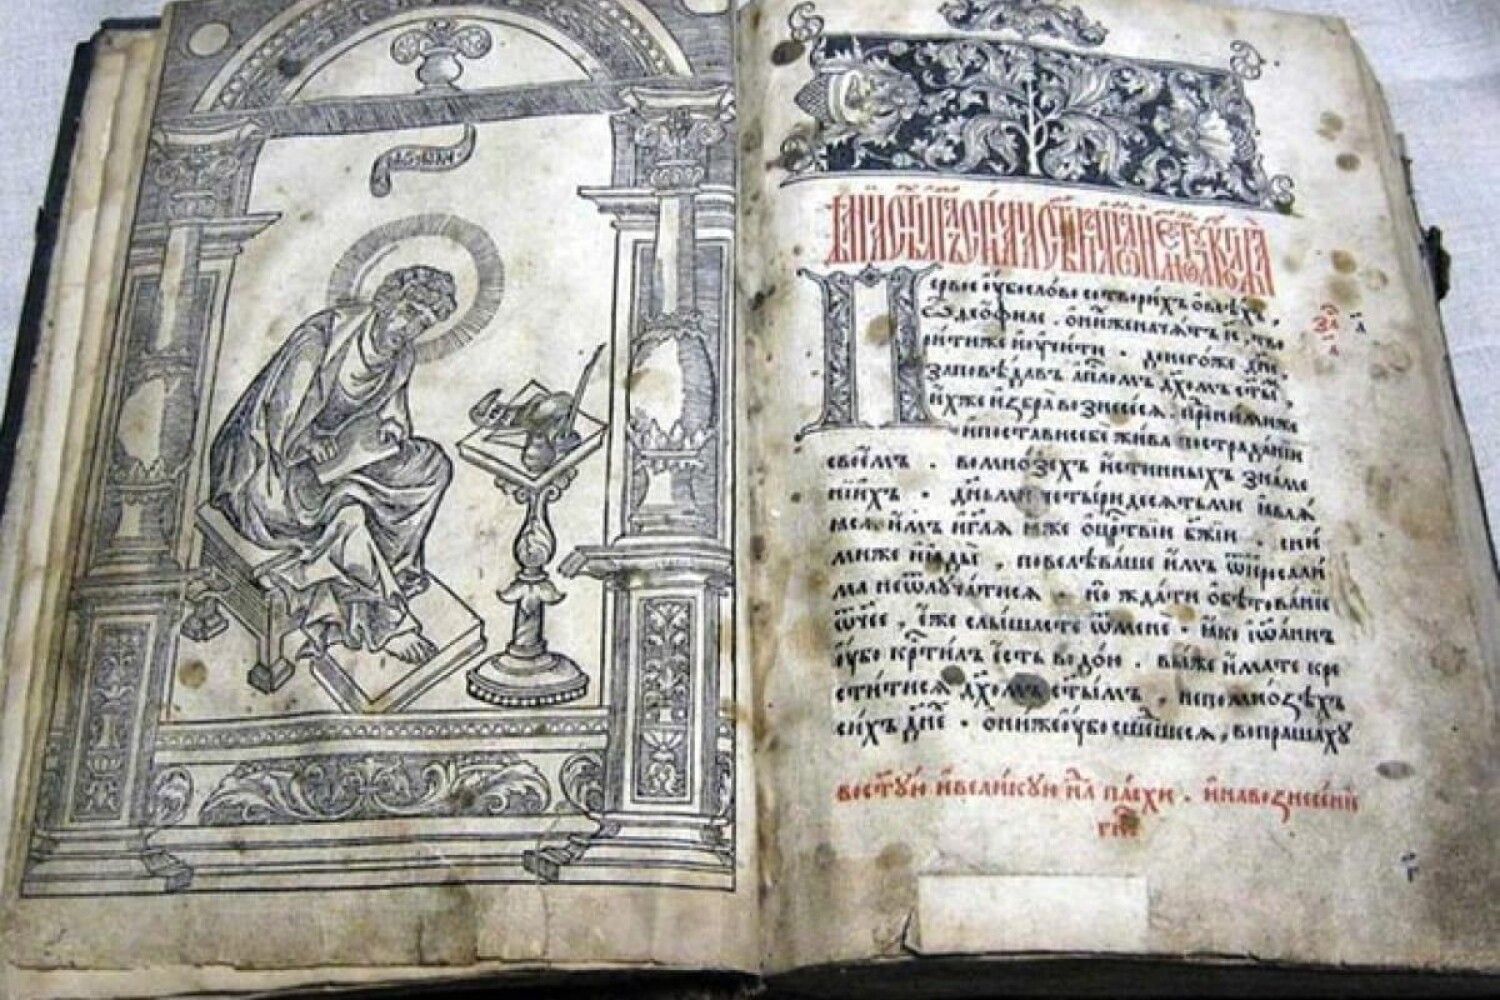 Первое оубо слово сотворихъ ѡ всѣхъ ,
ѽ ѳеофиле . ѡ нихже начатъ і҃с , тво
ритиже и оучити . донегоже дн҃е ,
заповѣдавъ ап҃лѡмъ дх҃омъ ст҃ымъ ,
ихже избра вознесесѧ . пред нимиже
и постави себе жива пострадании
своемъ . во мнозѣхъ истинныхъ знаме
нїихъ . дн҃ьми четыридесѧтьми ꙗвлѧ
ѧсѧ имъ и гл҃ѧ ꙗже о црⷭ҇твїи бж҃їи . сни
миже и ꙗды , повелѣваше имъ ѿ іерⷭ҇али
ма не ѿлучатисѧ . но ждати ѡбѣтованїе
ѿчее , еже слышасте ѿ мене . ꙗко іѡаннъ
оубо крⷭ҇тилъ есть водою . выже имате кре
ститисѧ дх҃омъ ст҃ымъ , непомнозѣхъ
сихъ дн҃е . ониже оубо сшедшесѧ , вопрашаху
во ст҃ую и великую нлⷣю пасхи . и на вознесенїе
гн҃е